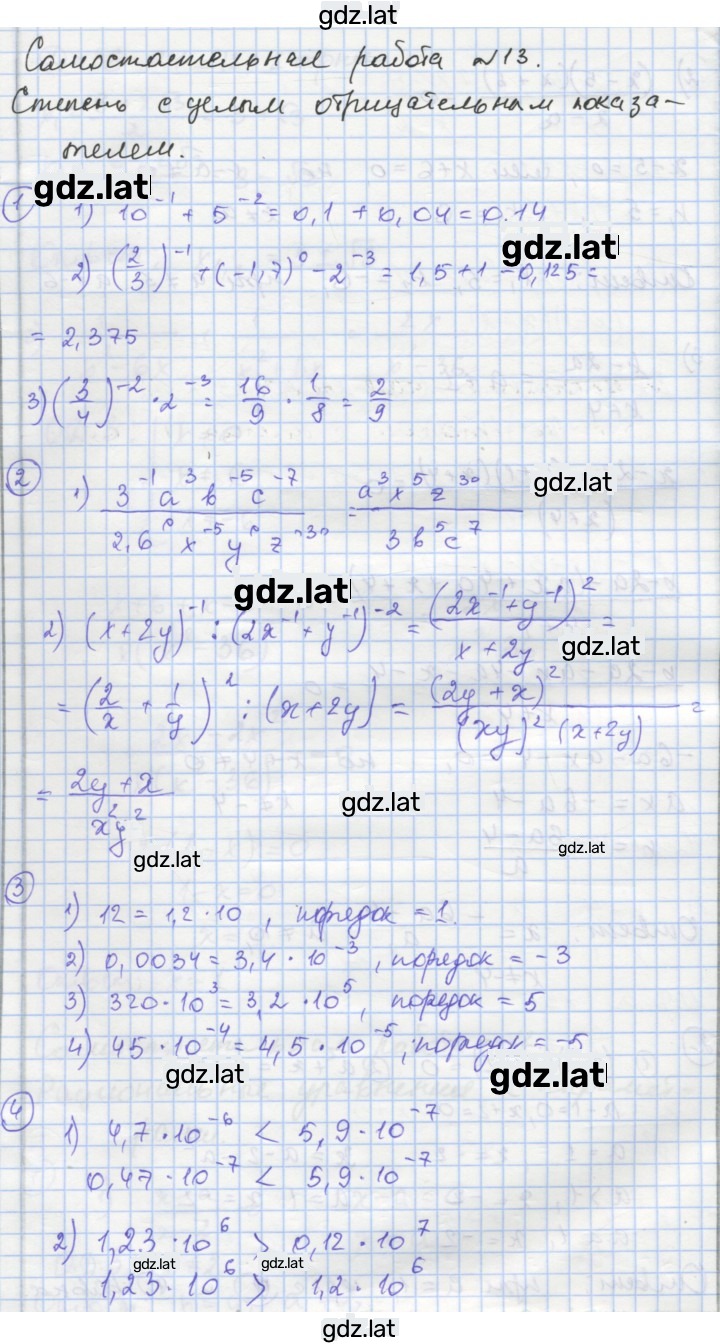 gdz.lat
Самостоятельная работа №13.
Степень с целым отрицательным показа-
телем.
gdz.lat
① 1) 10⁻¹ + 5⁻² = 0,1 + 0,04 = 0.14
gdz.lat
2) (2/3)⁻¹ + (-1,7)⁰ - 2⁻³ = 1,5 + 1 - 0,125 =
= 2,375
3) (3/4)⁻² · 2⁻³ = 16/9 · 1/8 = 2/9
② 1) (3⁻¹ a³ b⁻⁵ c⁻⁷)/(2,6⁰ x⁻⁵ y⁰ z⁻³⁰) = (a³ x⁵ z³⁰)/(3 b⁵ c⁷)
gdz.lat
gdz.lat
2) (x+2y)⁻¹ : (2x⁻¹ + y⁻¹)⁻² = (2x⁻¹+y⁻¹)²/(x+2y) =
gdz.lat
= (2/x + 1/y)² : (x+2y) = (2y+x)²/((xy)² (x+2y)) =
= (2y+x)/(x²y²)
gdz.lat
gdz.lat
gdz.lat
③
1) 12 = 1,2 · 10, порядок = 1.
2) 0,0034 = 3,4 · 10⁻³, порядок = -3
3) 320 · 10³ = 3,2 · 10⁵, порядок = 5
4) 45 · 10⁻⁴ = 4,5 · 10⁻⁵, порядок = -5
gdz.lat
gdz.lat
④ 1) 4,7 · 10⁻⁶ < 5,9 · 10⁻⁷
0,47 · 10⁻⁷ < 5,9 · 10⁻⁷
2) 1,23 · 10⁶ > 0,12 · 10⁷
gdz.lat gdz.lat
1,23 · 10⁶ > 1,2 · 10⁶
gdz.lat